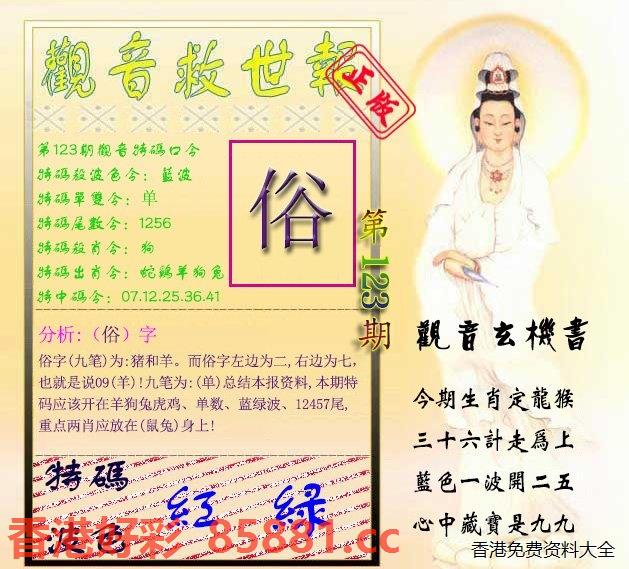 觀音救世報
正版
第123期觀音特碼口令
特碼殺波色令：藍波
特碼單雙令：单
特碼尾數令：1256
特碼殺肖令：狗
特碼出肖令：蛇鷄羊狗兔
特中碼令：07.12.25.36.41
俗
第123期
分析:（俗）字
俗字(九笔)为:猪和羊。而俗字左边为二,右边为七,
也就是说09(羊)!九笔为:(单)总结本报资料,本期特
码应该开在羊狗兔虎鸡、单数、蓝绿波、12457尾,
重点两肖应放在(鼠兔)身上!
特碼
波色
紅 緑
觀音玄機書
今期生肖定龍猴
三十六計走爲上
藍色一波開二五
心中藏寶是九九
香港好彩 85881.cc
香港免费资料大全